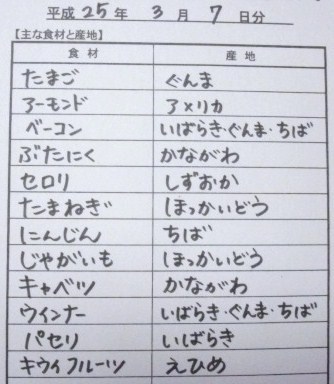 平成 25 年 3 月 7 日分
【主な食材と産地】
食材 産地
たまご ぐんま
アーモンド アメリカ
ベーコン いばらき・ぐんま・ちば
ぶたにく かながわ
セロリ しずおか
たまねぎ ほっかいどう
にんじん ちば
じゃがいも ほっかいどう
キャベツ かながわ
ウインナー いばらき・ぐんま・ちば
パセリ いばらき
キウイフルーツ えひめ